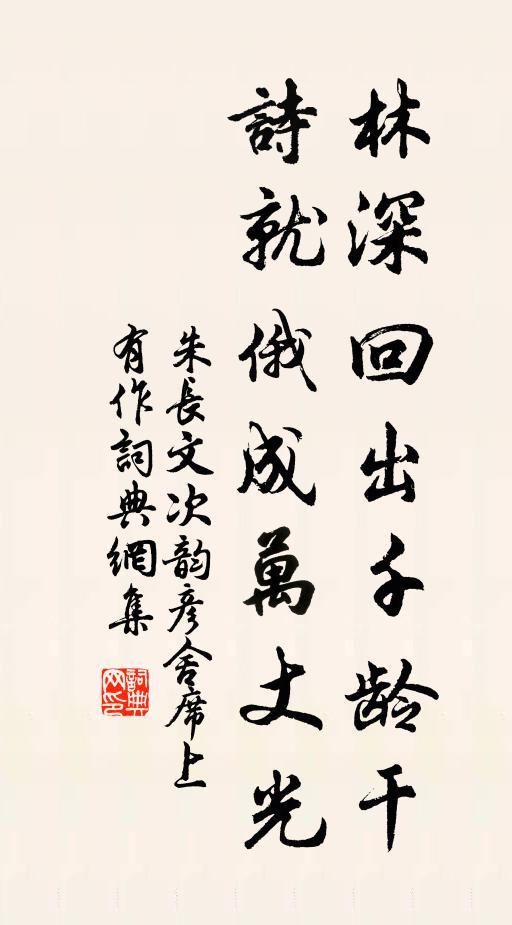 林深回出千龄干
詩就俄成萬丈光
朱長文次韵彦舍席上
有作詞典網集
詞典网印